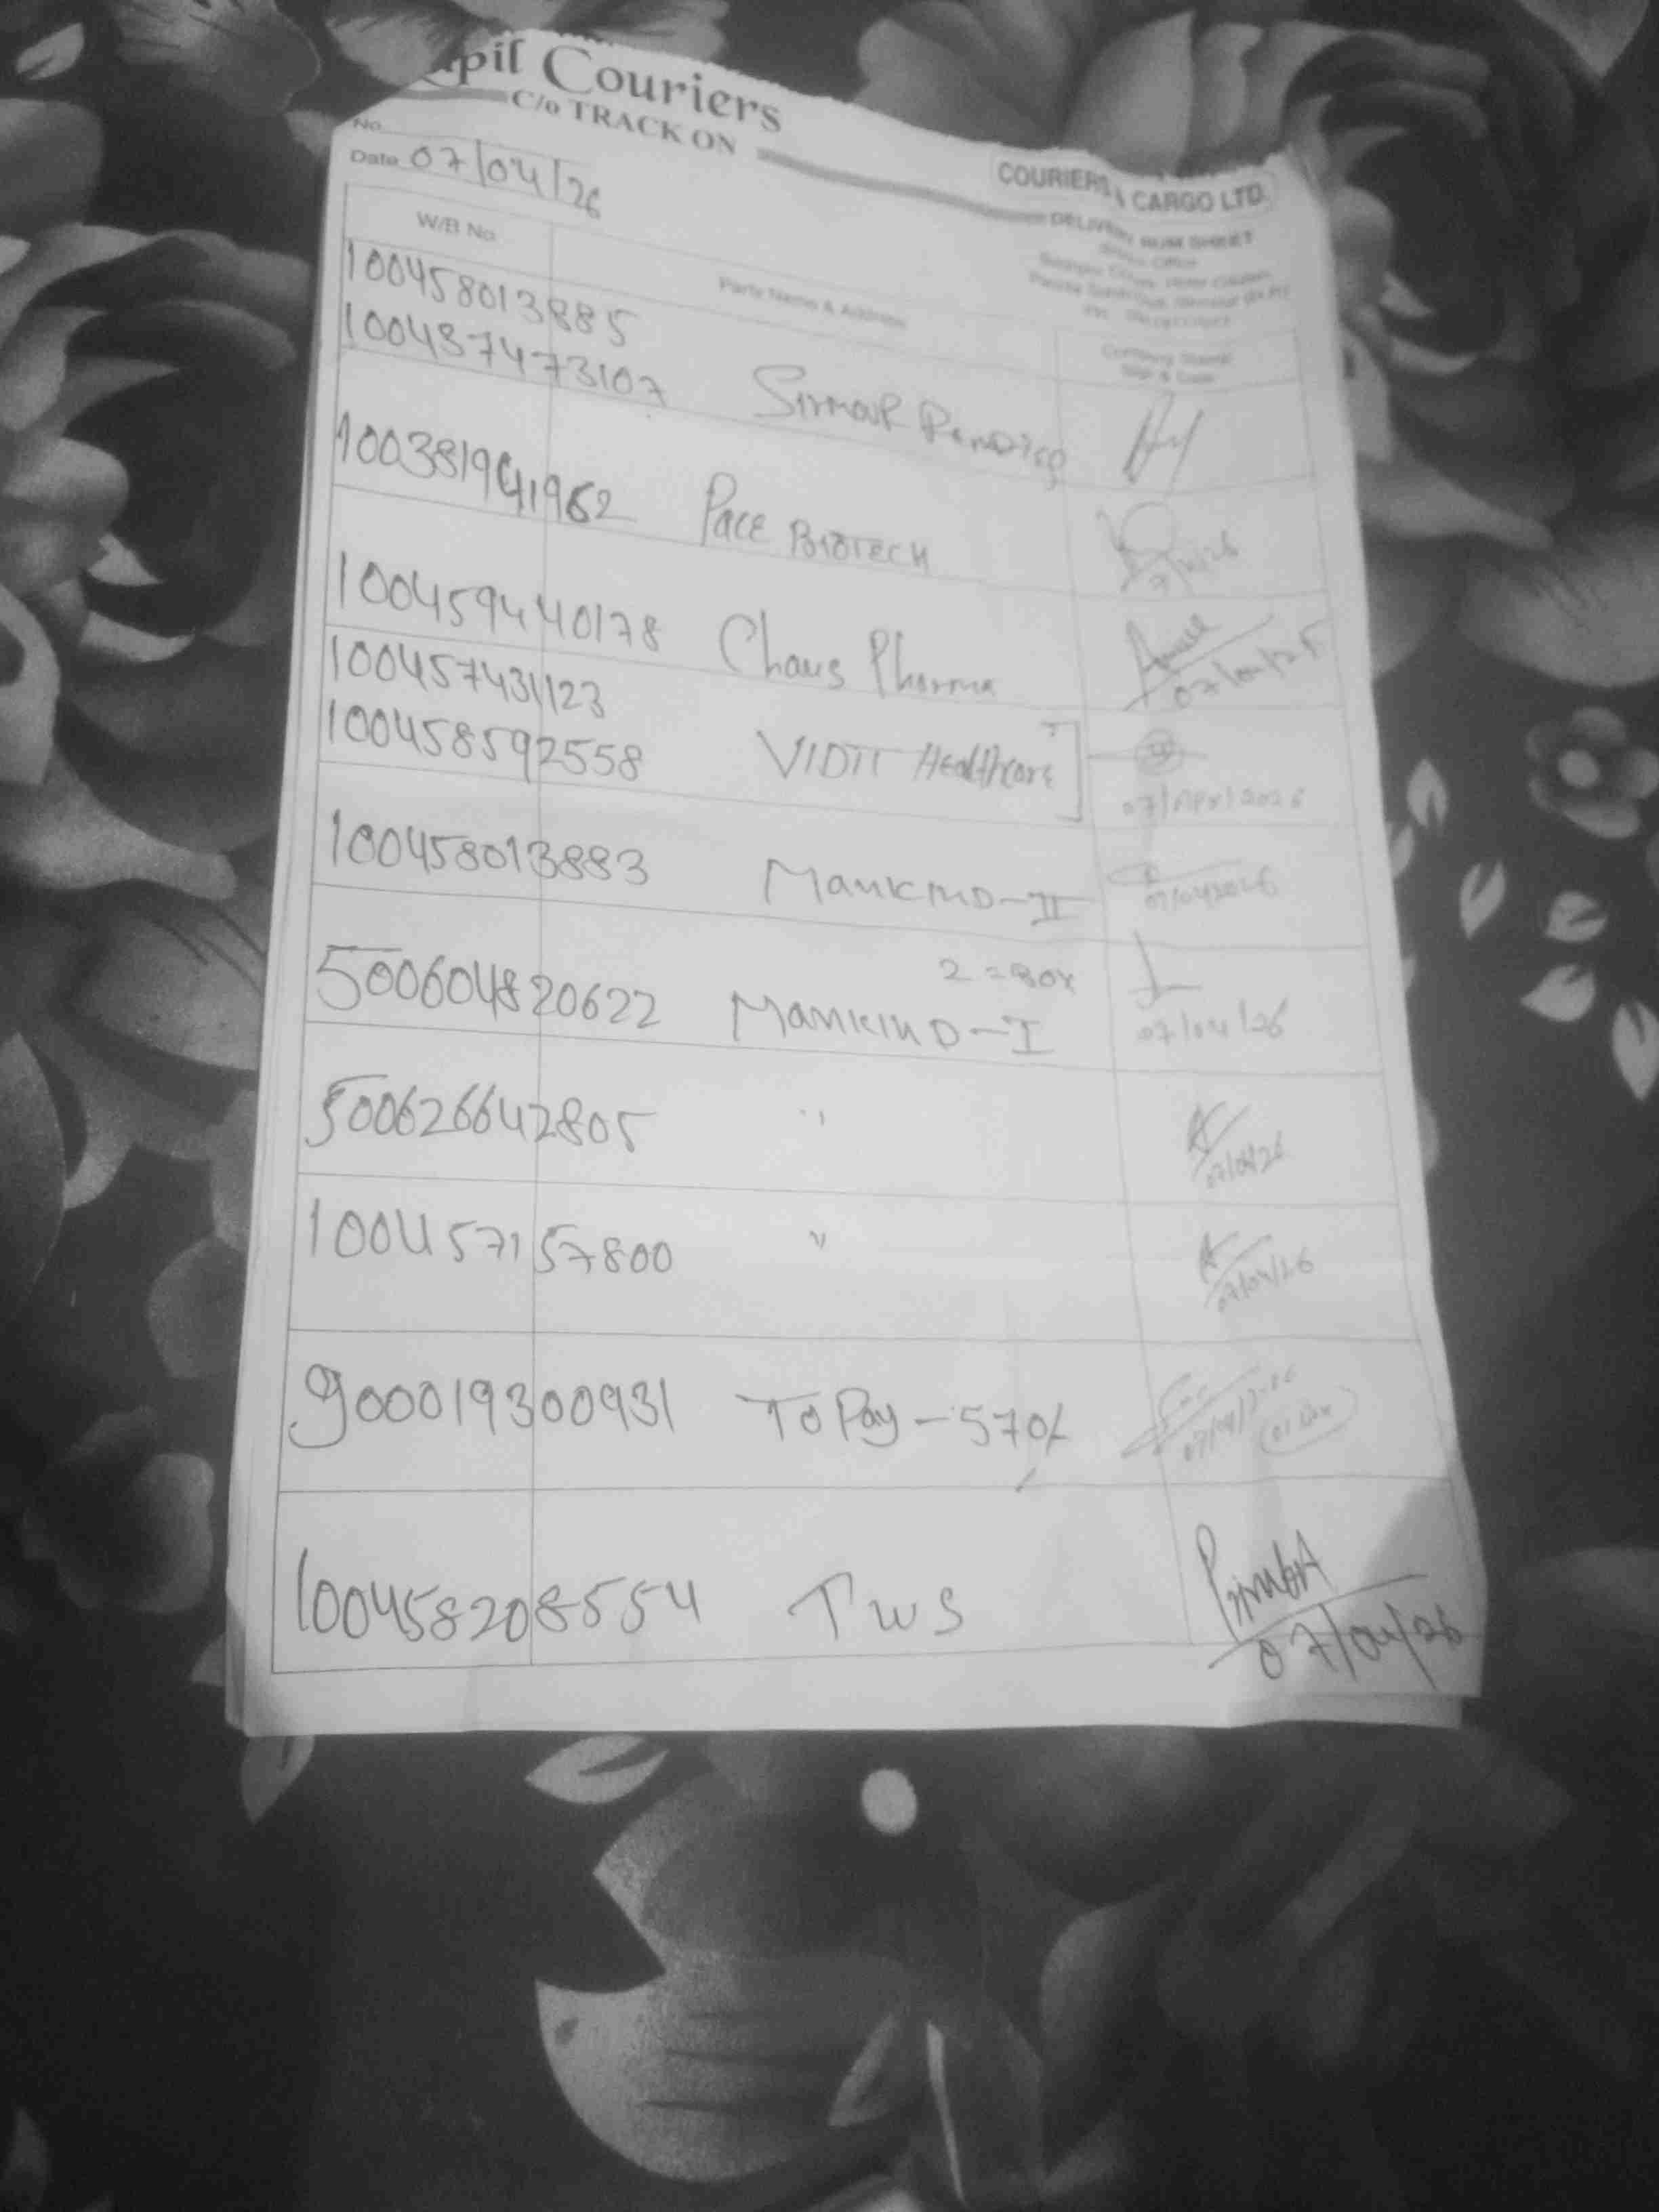 pil Couriers
C/o TRACK ON
COURIERS & CARGO LTD.
No.
Date 07/04/26
DELIVERY RUN SHEET
W/B No.
Party Name & Address
Company Stamp
Sign & Date
100458013885
100437473107 Sirmour
100381941962 Pace Biotech
7/4/26
100459440178 Chaus Pharma
100457431123
100458592558 VIDIT Healthcare
07/Apr/2026
100458013883 MankinD-II
07/04/2026
2 = Box
500604820622 MankinD-I
07/04/26
500626642805 "
07/04/26
100457157800 "
07/04/26
900019300931 To Pay - 570/-
100458208554 TWS
07/04/26